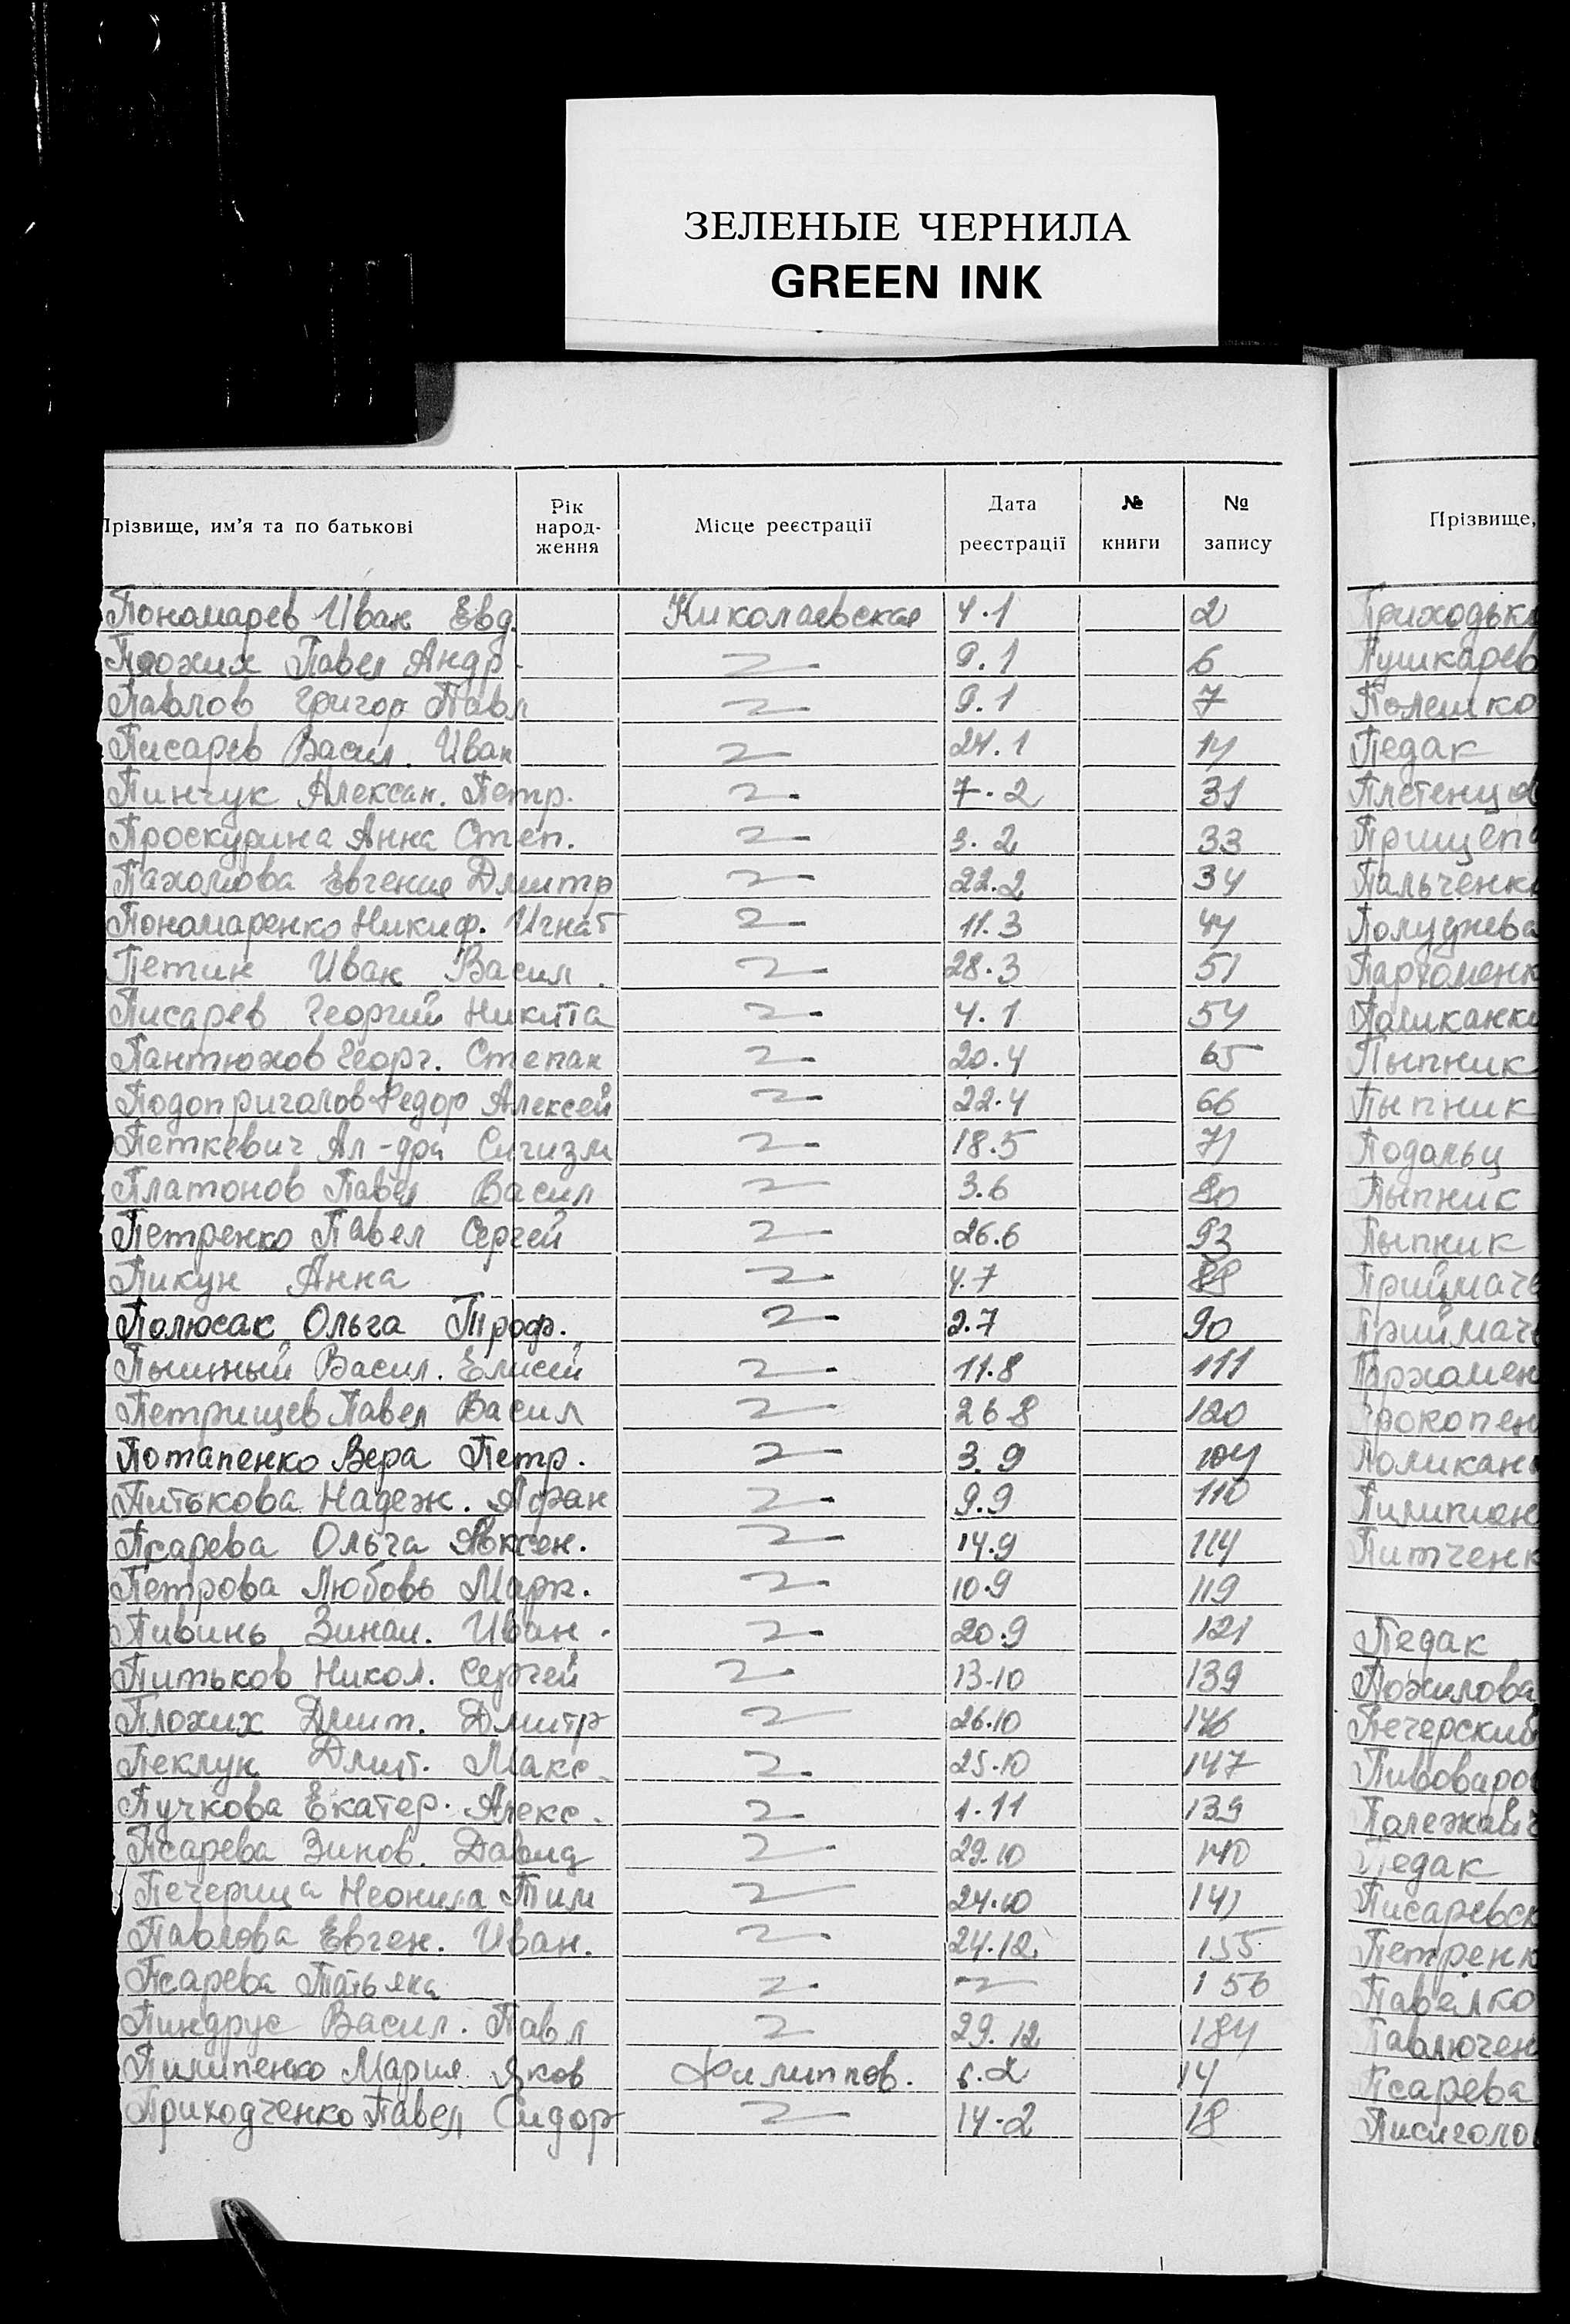 ЗЕЛЕНЫЕ ЧЕРНИЛА
GREEN INK
Прізвище, им'я та по батькові Рік народ-ження Місце реєстрації Дата реєстрації № книги № запису
Пономарев Иван Евд. Николаевская 4.1 2
Плохих Павел Андр. 9.1 6
Павлов Григор Павл 9.1 7
Писарев Васил. Иван 24.1 14
Пинчук Алексан. Петр. 7.2 31
Проскурина Анна Степ. 3.2 33
Пахомова Евгения Дмитр 22.2 34
Пономаренко Никиф. Игнат 11.3 44
Петин Иван Васил. 28.3 51
Писарев Георгий Никита 4.1 54
Пантюхов Георг. Степан 20.4 65
Подопригалов Федор Алексей 22.4 66
Петкевич Ал-дра Сигизм 18.5 71
Платонов Павел Васил 3.6 80
Петренко Павел Сергей 26.6 93
Пикун Анна 4.7 88
Полюсак Ольга Троф. 2.7 90
Пышный Васил. Елисей 11.8 111
Петрищев Павел Васил 26 8 120
Потапенко Вера Петр. 3.9 104
Питькова Надеж. Афан 9.9 110
Псарева Ольга Авксен. 14.9 114
Петрова Любовь Марк. 10.9 119
Пивинь Зинаи. Иван. 20.9 121
Питьков Никол. Сергей 13-10 139
Плохих Дмит. Дмитр 26.10 146
Пеклун Дмит. Макс. 25.10 147
Пучкова Екатер. Алекс. 1.11 139
Псарева Зинов. Давид 29.10 140
Печерица Неонила Тим 24.10 141
Павлова Евген. Иван. 24.12 155
Псарева Татьяна 156
Пиндрус Васил. Павл 29.12 184
Пилипенко Мария Яков Филиппов. 6.2 14
Приходченко Павел Сидор 14-2 18
Прізвище,
Приходько
Пушкарев
Полешко
Педак
Плетенца
Прищепа
Пальченк
Полуднева
Пархоменк
Пыпник
Пыпник
Подольц
Пыпник
Пыпник
Приймач
Приймач
Пархомен
Прокопен
Поликан
Пилипчен
Питченк
Педак
Пожилова
Печерский
Пивоваров
Педак
Писаревск
Петренк
Павелко
Павлючен
Псарева
Писиголо